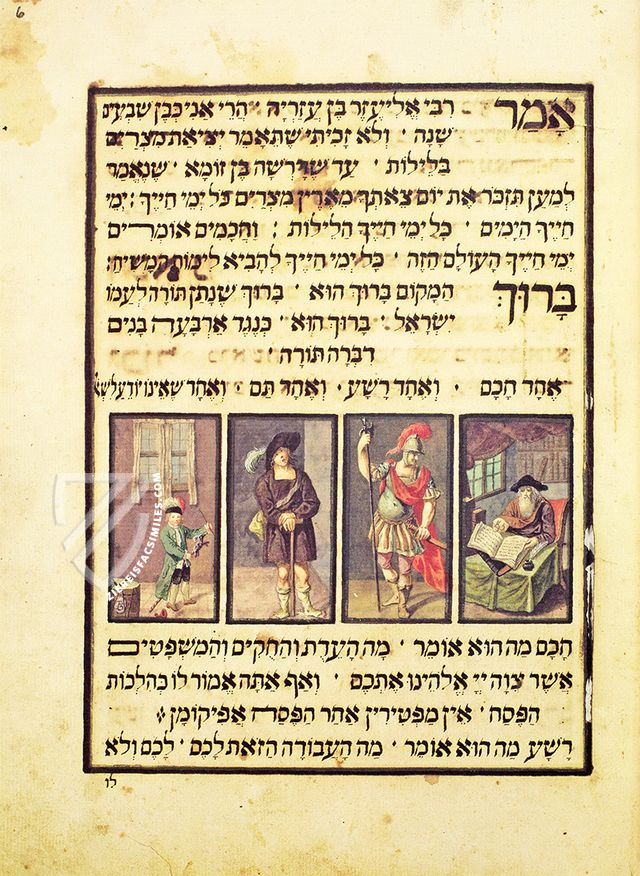 6
אָמַר רבִּי אֶלִיעֶזֶר בֶּן עֲזַרְיָה ׳ הֲרֵי אֲנִי כְּבֶן שִׁבְעִים
שָׁנָה ׳ וְלֹא זָכִיתִי שֶׁתֵּאָמֵר יְצִיאַת מִצְרַיִם
בַּלֵּילוֹת ׳ עַד שֶׁדְּרָשָׁהּ בֶּן זוֹמָא ׳ שֶׁנֶּאֱמַר
לְמַעַן תִּזְכֹּר אֶת יוֹם צֵאתְךָ מֵאֶרֶץ מִצְרַיִם כֹּל יְמֵי חַיֶּיךָ ׃ יְמֵי
חַיֶּיךָ הַיָּמִים ׳ כָּל יְמֵי חַיֶּיךָ הַלֵּילוֹת ׃ וַחֲכָמִים אוֹמְרִים
יְמֵי חַיֶּיךָ הָעוֹלָם הַזֶּה ׳ כָּל יְמֵי חַיֶּיךָ לְהָבִיא לִימוֹת הַמָּשִׁיחַ ׃
בָּרוּךְ הַמָּקוֹם בָּרוּךְ הוּא ׳ בָּרוּךְ שֶׁנָּתַן תּוֹרָה לְעַמּוֹ
יִשְׂרָאֵל ׳ בָּרוּךְ הוּא ׳ כְּנֶגֶד אַרְבָּעָה בָנִים
דִּבְּרָה תוֹרָה ׳
אֶחָד חָכָם ׳ וְאֶחָד רָשָׁע ׳ וְאֶחָד תַּם ׳ וְאֶחָד שֶׁאֵינוֹ יוֹדֵעַ לִשְׁא׳
ZIEREISFACSIMILES.COM
חָכָם מַה הוּא אוֹמֵר ׳ מָה הָעֵדֹת וְהַחֻקִּים וְהַמִּשְׁפָּטִים
אֲשֶׁר צִוָּה יְיָ אֱלֹהֵינוּ אֶתְכֶם ׳ וְאַף אַתָּה אֱמוֹר לוֹ כְּהִלְכוֹת
הַפֶּסַח ׳ אֵין מַפְטִירִין אַחַר הַפֶּסַח אֲפִיקוֹמָן ׃
רָשָׁע מַה הוּא אוֹמֵר ׳ מָה הָעֲבוֹדָה הַזֹּאת לָכֶם ׳ לָכֶם וְלֹא
לו